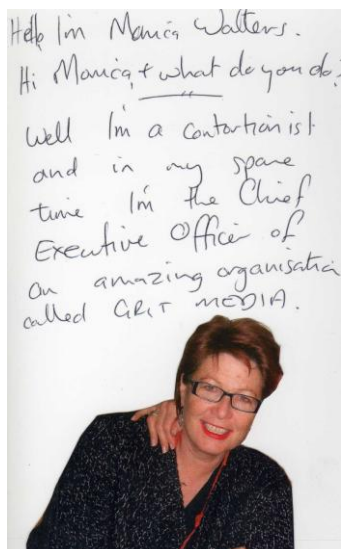 Hello I'm Monica Walters.
Hi Monica & what do you do?
Well I'm a contortionist
and in my spare
time I'm the Chief
Executive Officer of
an amazing organisation
called GRIT MEDIA.